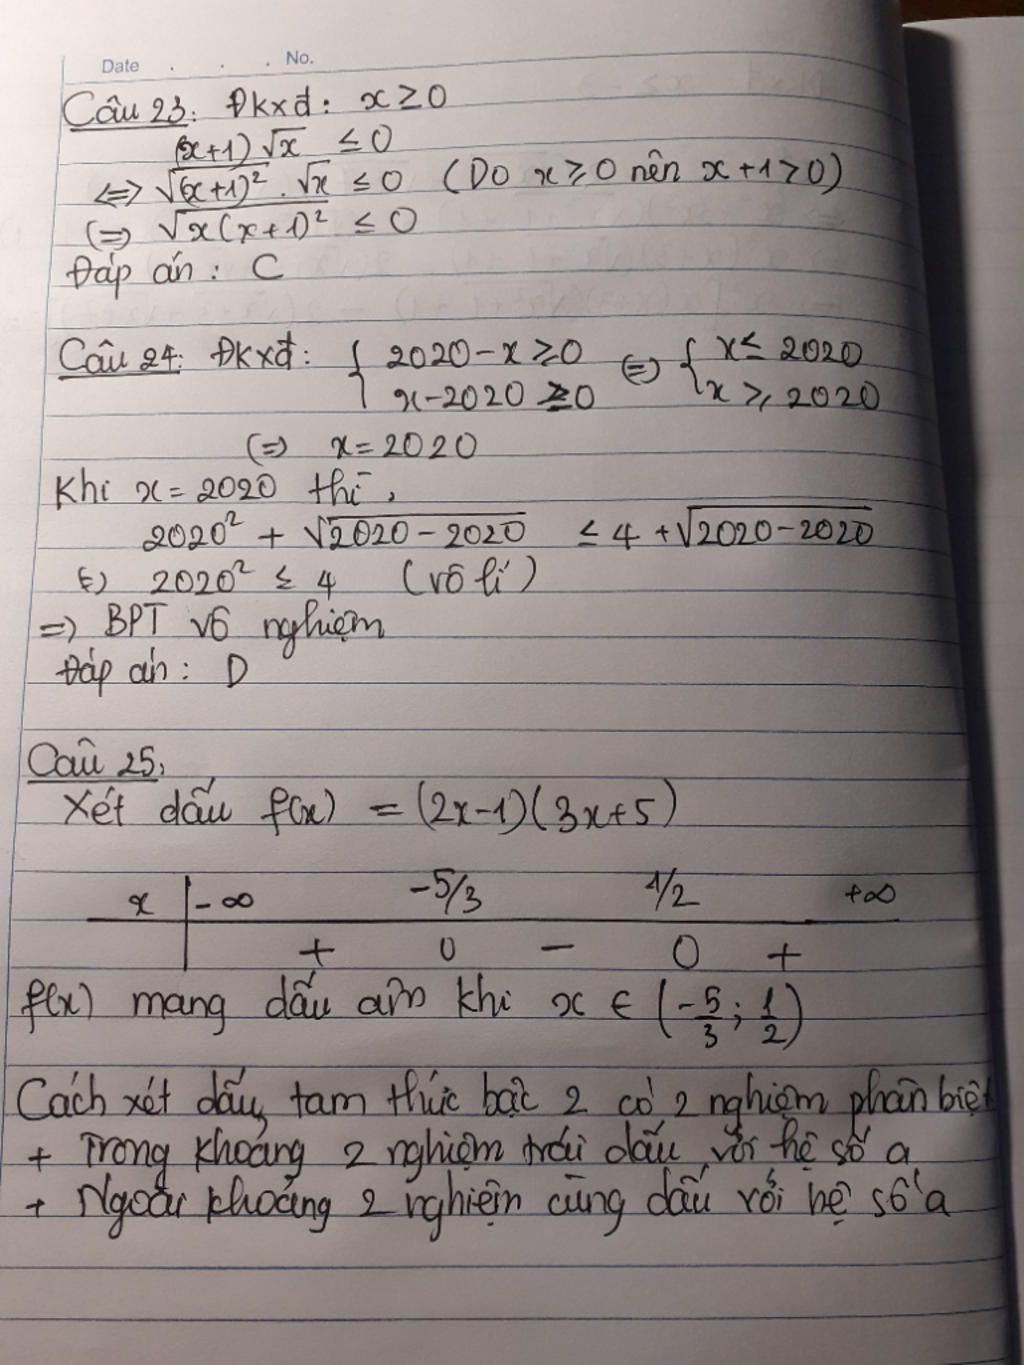 Date . . . No.
Câu 23: Đkxđ: x ≥ 0
(x+1)√x ≤ 0
<=> √(x+1)² . √x ≤ 0 (Do x ≥ 0 nên x+1 > 0)
(=) √x(x+1)² ≤ 0
Đáp án: C
Câu 24: Đkxđ: { 2020-x ≥ 0 (=) { x ≤ 2020
x-2020 ≥ 0 x ≥ 2020
(=) x = 2020
Khi x = 2020 thì,
2020² + √2020-2020 ≤ 4 + √2020-2020
2020² ≤ 4 (vô lí)
=> BPT vô nghiệm
Đáp án: D
Câu 25,
Xét dấu f(x) = (2x-1)(3x+5)
x | -∞ -5/3 1/2 +∞
| + 0 - 0 +
f(x) mang dấu âm khi x ∈ (-5/3; 1/2)
Cách xét dấu tam thức bậc 2 có 2 nghiệm phân biệt
+ Trong khoảng 2 nghiệm trái dấu với hệ số a
+ Ngoài khoảng 2 nghiệm cùng dấu với hệ số a